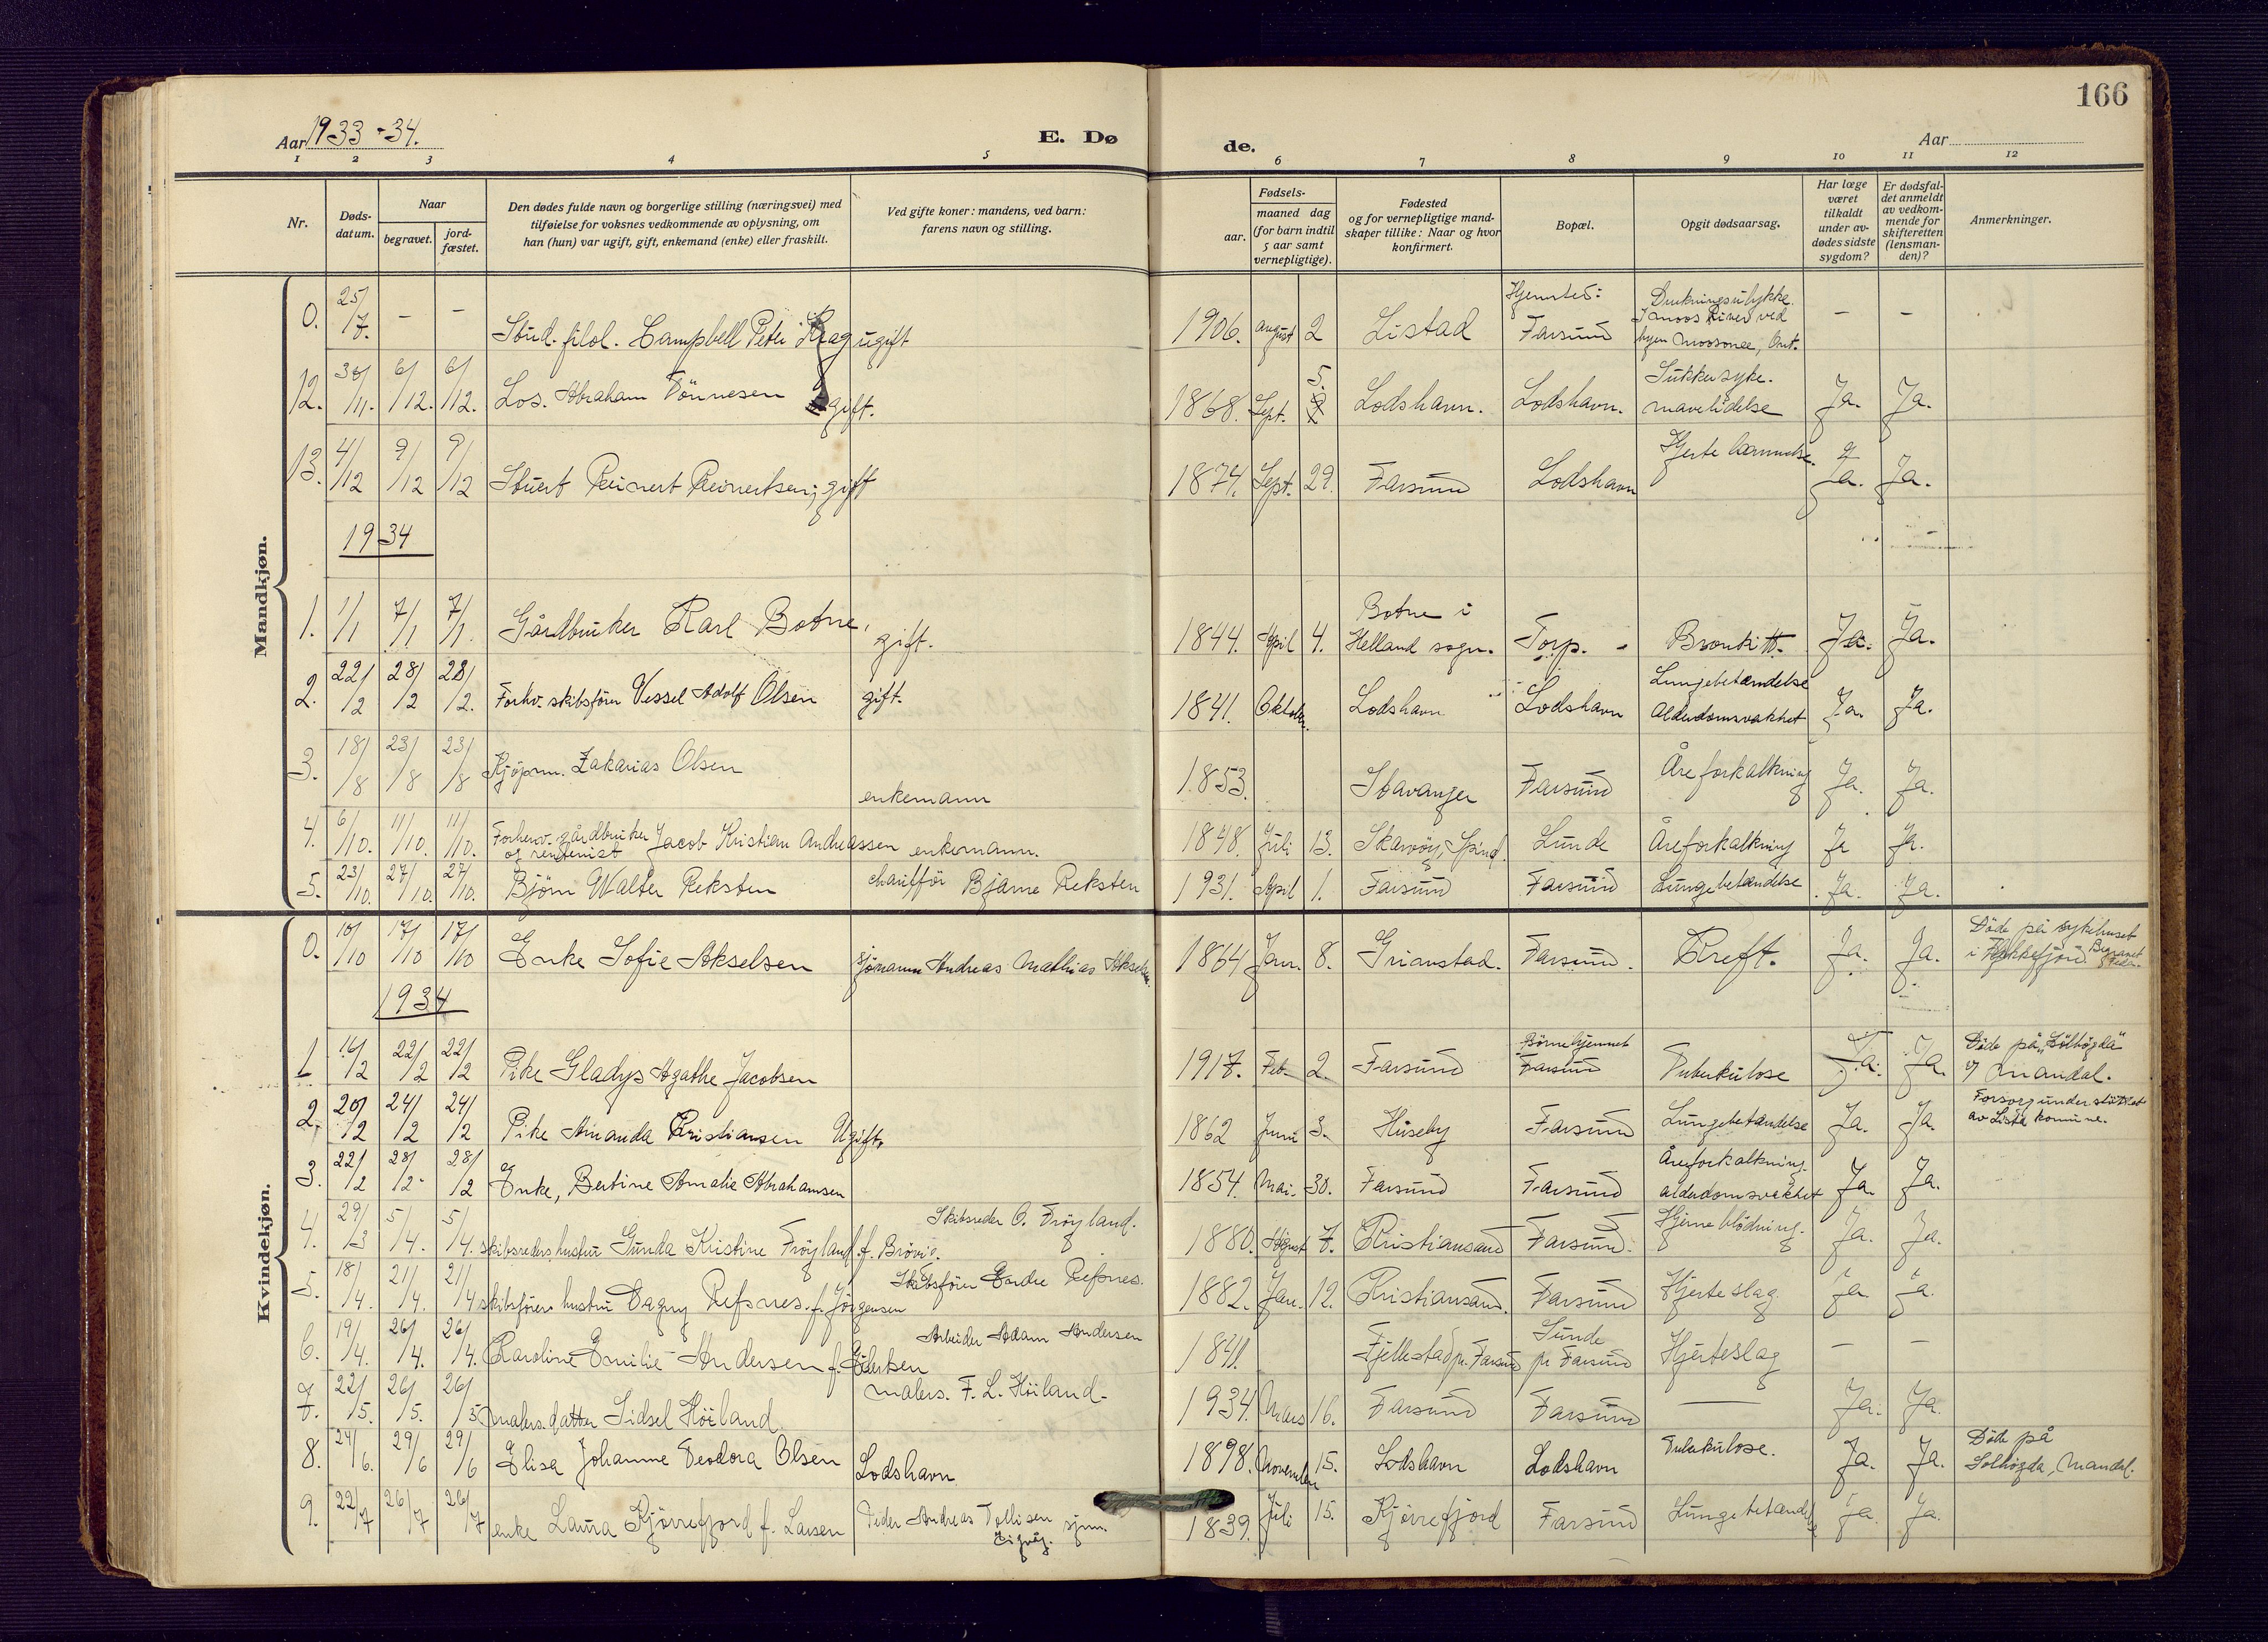 166
Aar 1933-34.
E. Dø
de.
Aar
1 2 3 4 5 6 7 8 9 10 11 12
Nr.
Døds-
datum.
Naar
begravet.
jord-
fæstet.
Den dødes fulde navn og borgerlige stilling (næringsvei) med
tilføielse for voksnes vedkommende av oplysning, om
han (hun) var ugift, gift, enkemand (enke) eller fraskilt.
Ved gifte koner: mandens, ved barn:
farens navn og stilling.
Fødsels-
aar.
maaned dag
(for barn indtil
5 aar samt
vernepligtige).
Fødested
og for vernepligtige mand-
skaper tillike: Naar og hvor
konfirmert.
Bopæl.
Opgit dødsaarsag.
Har læge
været
tilkaldt
under av-
dødes sidste
sygdom?
Er dødsfal-
det anmeldt
av vedkom-
mende for
skifteretten
(lensman-
den)?
Anmerkninger.
Mandkjøn.
0. 25/7. - - Stud. filol. Campbell Peter Krag ugift 1906. august 2 Listad Hjemsted: Farsund Drukningsulykke. I Moos River ved byen Moosonee, Ont. - -
12. 30/11. 6/12. 6/12. Los. Abraham Tönnesen gift. 1868. Sept. 5. Lodshavn. Lodshavn. Sukkersyke. mavelidelse Ja. Ja.
13. 4/12 9/12 9/12 Stuert Reinert Reinertsen; gift 1874. Sept. 29. Farsund Lodshavn Hjerte lammelse. Ja. Ja.
1934
1. 1/1 7/1 7/1. Gårdbruker Karl Botne, gift. 1844. April 4. Botne i Helland sogn. Torp. Bronkitt. Ja. Ja.
2. 22/2 28/2 28/2. Forhv. skibsförer Vessel Adolf Olsen gift. 1841. Oktober. Lodshavn Lodshavn Lungebetændelse Alderdomsvakhet Ja. Ja.
3. 18/8 23/8 23/8 Kjöpm. Zakarias Olsen enkemann 1853. Stavanger Farsund Åreforkalkning Ja. Ja.
4. 6/10. 11/10. 11/10. Forhenv. gårdbruker og rentenist Jacob Kristian Andreassen enkemann. 1848. Juli 13. Skarvöy, Spind. Lunde Åreforkalkning Ja Ja.
5. 23/10. 27/10. 27/10. Björn Walter Reksten chaufför Bjarne Reksten 1931. April 1. Farsund Farsund Lungebetændelse Ja. Ja.
Kvindekjøn.
0. 10/10 17/10 17/10 Enke Sofie Akselsen sjömann Andreas Mathias Akselsen. 1864 Jan. 8. Grimstad. Farsund. Kreft. Ja. Ja. Döde på sykehuset i Flekkefjord. Begravet
1934
1 16/2 22/2 22/2 Pike Gladys Agathe Jacobsen 1917. Feb. 2. Farsund Börnehjemmet Farsund Tuberkulose Ja. Ja. Döde på "Solhögda" Mandal.
2. 20/2 24/2 24/2 Pike Amanda Kristiansen Ugift. 1862 Juni 3. Huseby Farsund Lungebetændelse Ja. Ja. Forsorgunderstöttet av Lista komune.
3. 22/2 28/2. 28/2 Enke, Bertine Amalie Abrahamsen 1854. Mai. 30. Farsund Farsund Åreforkalkning. alderdomsvakhet Ja. Ja.
4. 29/3 5/4. 5/4. skibsreders hustru Gunda Kristine Fröyland f. Brövig. Skibsreder O. Fröyland. 1880. August 7. Kristiansand Farsund. Hjerneblödning. Ja. Ja.
5. 18/4. 21/4. 21/4 skibsförers hustru Dagny Refsnes. f. Jörgensen Skibsförer Endre Refsnes. 1882. Jan. 12. Kristiansand. Farsund Hjerteslag Ja Ja.
6. 19/4. 26/4. 26/4. Karoline Emilie Andersen f. Gilbertsen Arbeider Adam Andersen 1841. Fjellestad pr. Farsund Sunde pr Farsund Hjerteslag - -
7. 22/5. 26/5. 26/5 malers datter Sidsel Höiland malerm. F. L. Höiland. 1934. Mars 16. Farsund Farsund — Ja. Ja.
8. 24/6. 29/6 29/6 Elisa Johanne Teodora Olsen Lodshavn 1898. November 15. Lodshavn Lodshavn Tuberkulose. Ja. Ja. Döde på Solhögda, Mandal.
9. 22/7 26/7 26/7 enke Laura Kjörrefjord f. Larsen Peder Andreas Tollisen sjm. 1839. Juli 15. Kjörrefjord Farsund Lungebetændelse Ja. Ja.